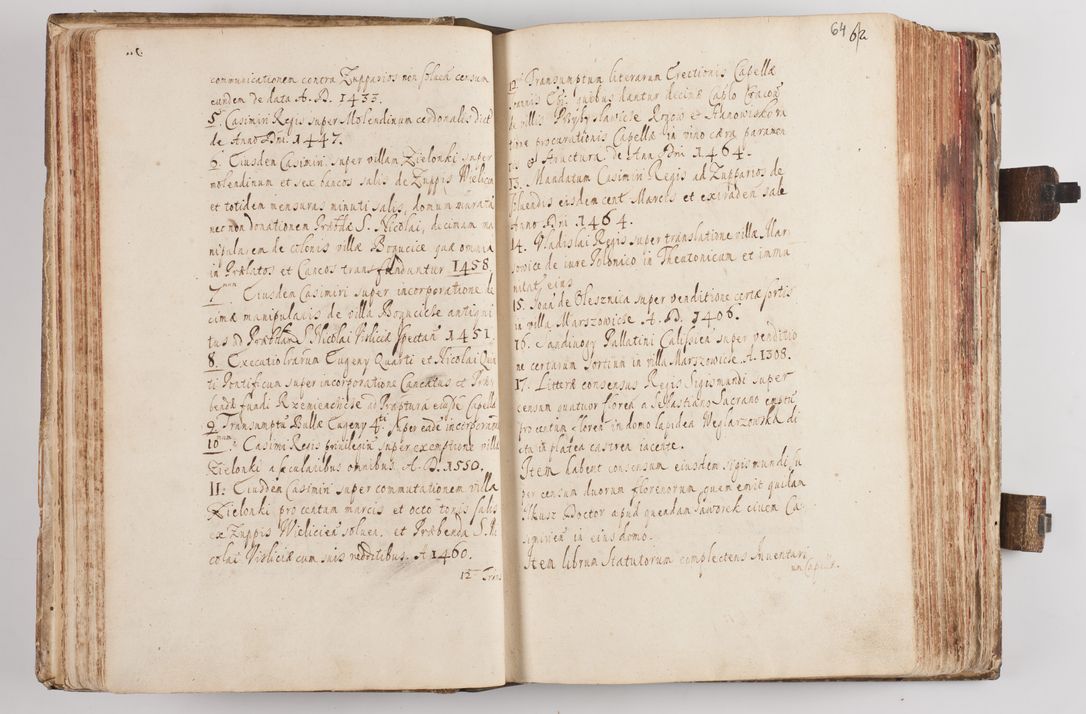 communicationem contra Zupparios non soluen censum
eundem de data A. D. 1433.
5. Casimiri Regis super Molendinum cerdonale dict
de Anno Dni. 1447.
6. Eiusdem Casimiri super villam Zielonki super
molendinum et sex bancos salis de Zuppis Wielicien
et totidem mensuras minuti salis, domum murata
nec non donationem Præbdæ S. Nicolai, decimam ma
nipularem de colonis villæ Bogucice quæ omnia
in Prælatos et Cancos transfunduntur 1458
7mum Eiusdem Casimiri super incorporatione de
cimæ manipularis de villa Bogucicze antiqui
tus ad Præbdam S. Nicolai Visliciæ spectan 1451
8. Executio lrarum Eugeny Quarti et Nicolai Quin
ti Pontificum super incorporatione Cancatus et Præ
bendæ fundi Rzemiendicze ad Præptura eiusd Capellæ
9. Transumptu Bullæ Eugeny 4ti super eade incorporaone
10mum: Casimi Regis privilegiu super exemptione villæ
Zielonki a secularibus omnibus. A. D. 1550.
11: Eiusdem Casimiri super commutationem villa
Zielonki pro centum marcis et octo tonis salis
ex Zuppis Wielicien soluen. et Præbenda S. Ni
colai Visliciæ cum suis redditibus. A 1460.
12 Trans
64 62
12 Transumptum literarum Erectionis Capellæ
quibus dantur decimæ Caplo Cracov
de villis Przybyslawice Rzgow et Hanowiskora
tione procurationis Capellæ in vino cæra paramen
structura. de Ann Dni 1464.
13. Mandatum Casimiri Regis ad Zupparios de
soluendis eisdem cent Marcis et exinaden sale
Anno Dni 1464.
14. Vladislai Regis super translatione villæ Mar
sowice de iure Polonico in Theutonicum et immu
nitat eius
15. Joan de Olesznica super venditione certæ sortis
in villa Marszowicze A. D. 1406.
16. Sandivogy Pallatini Calissien super venditio
ne certarum sortium in villa Marszowicze. A. 1308.
17. Litteræ consensus Regis Sigismundi super
censum quatuor floren a Sebastiano Sacrano emptu
pro centum floren in domo lapidea Weglarzowska di
cta in platea castren iacente.
Item habent consensum eiusdem Sigismundi su
per censum duorum florenorum quem emit quidam
Ilkusz Doctor apud quendam Jaworek civem Ca
simirien in eius domo.
Item librum Statutorum complectens Inuentari
um Capituli.